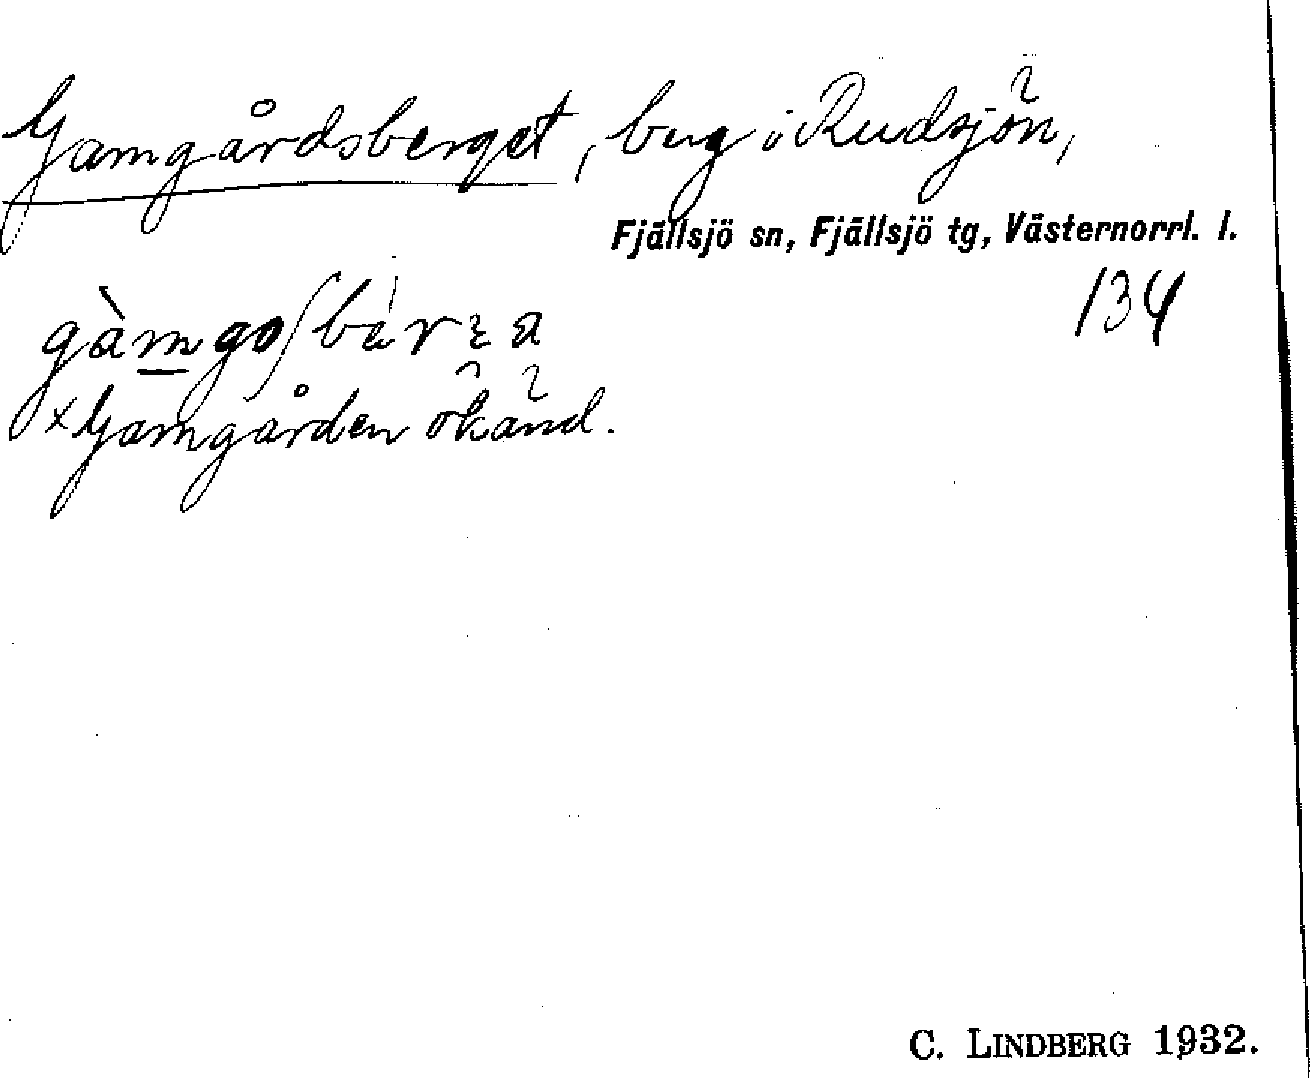 Gamgårdsberget, berg i Rudsjön,
Fjällsjö sn, Fjällsjö tg, Västernorrl. l.
134
× Gamgården okänd.
C. LINDBERG 1932.